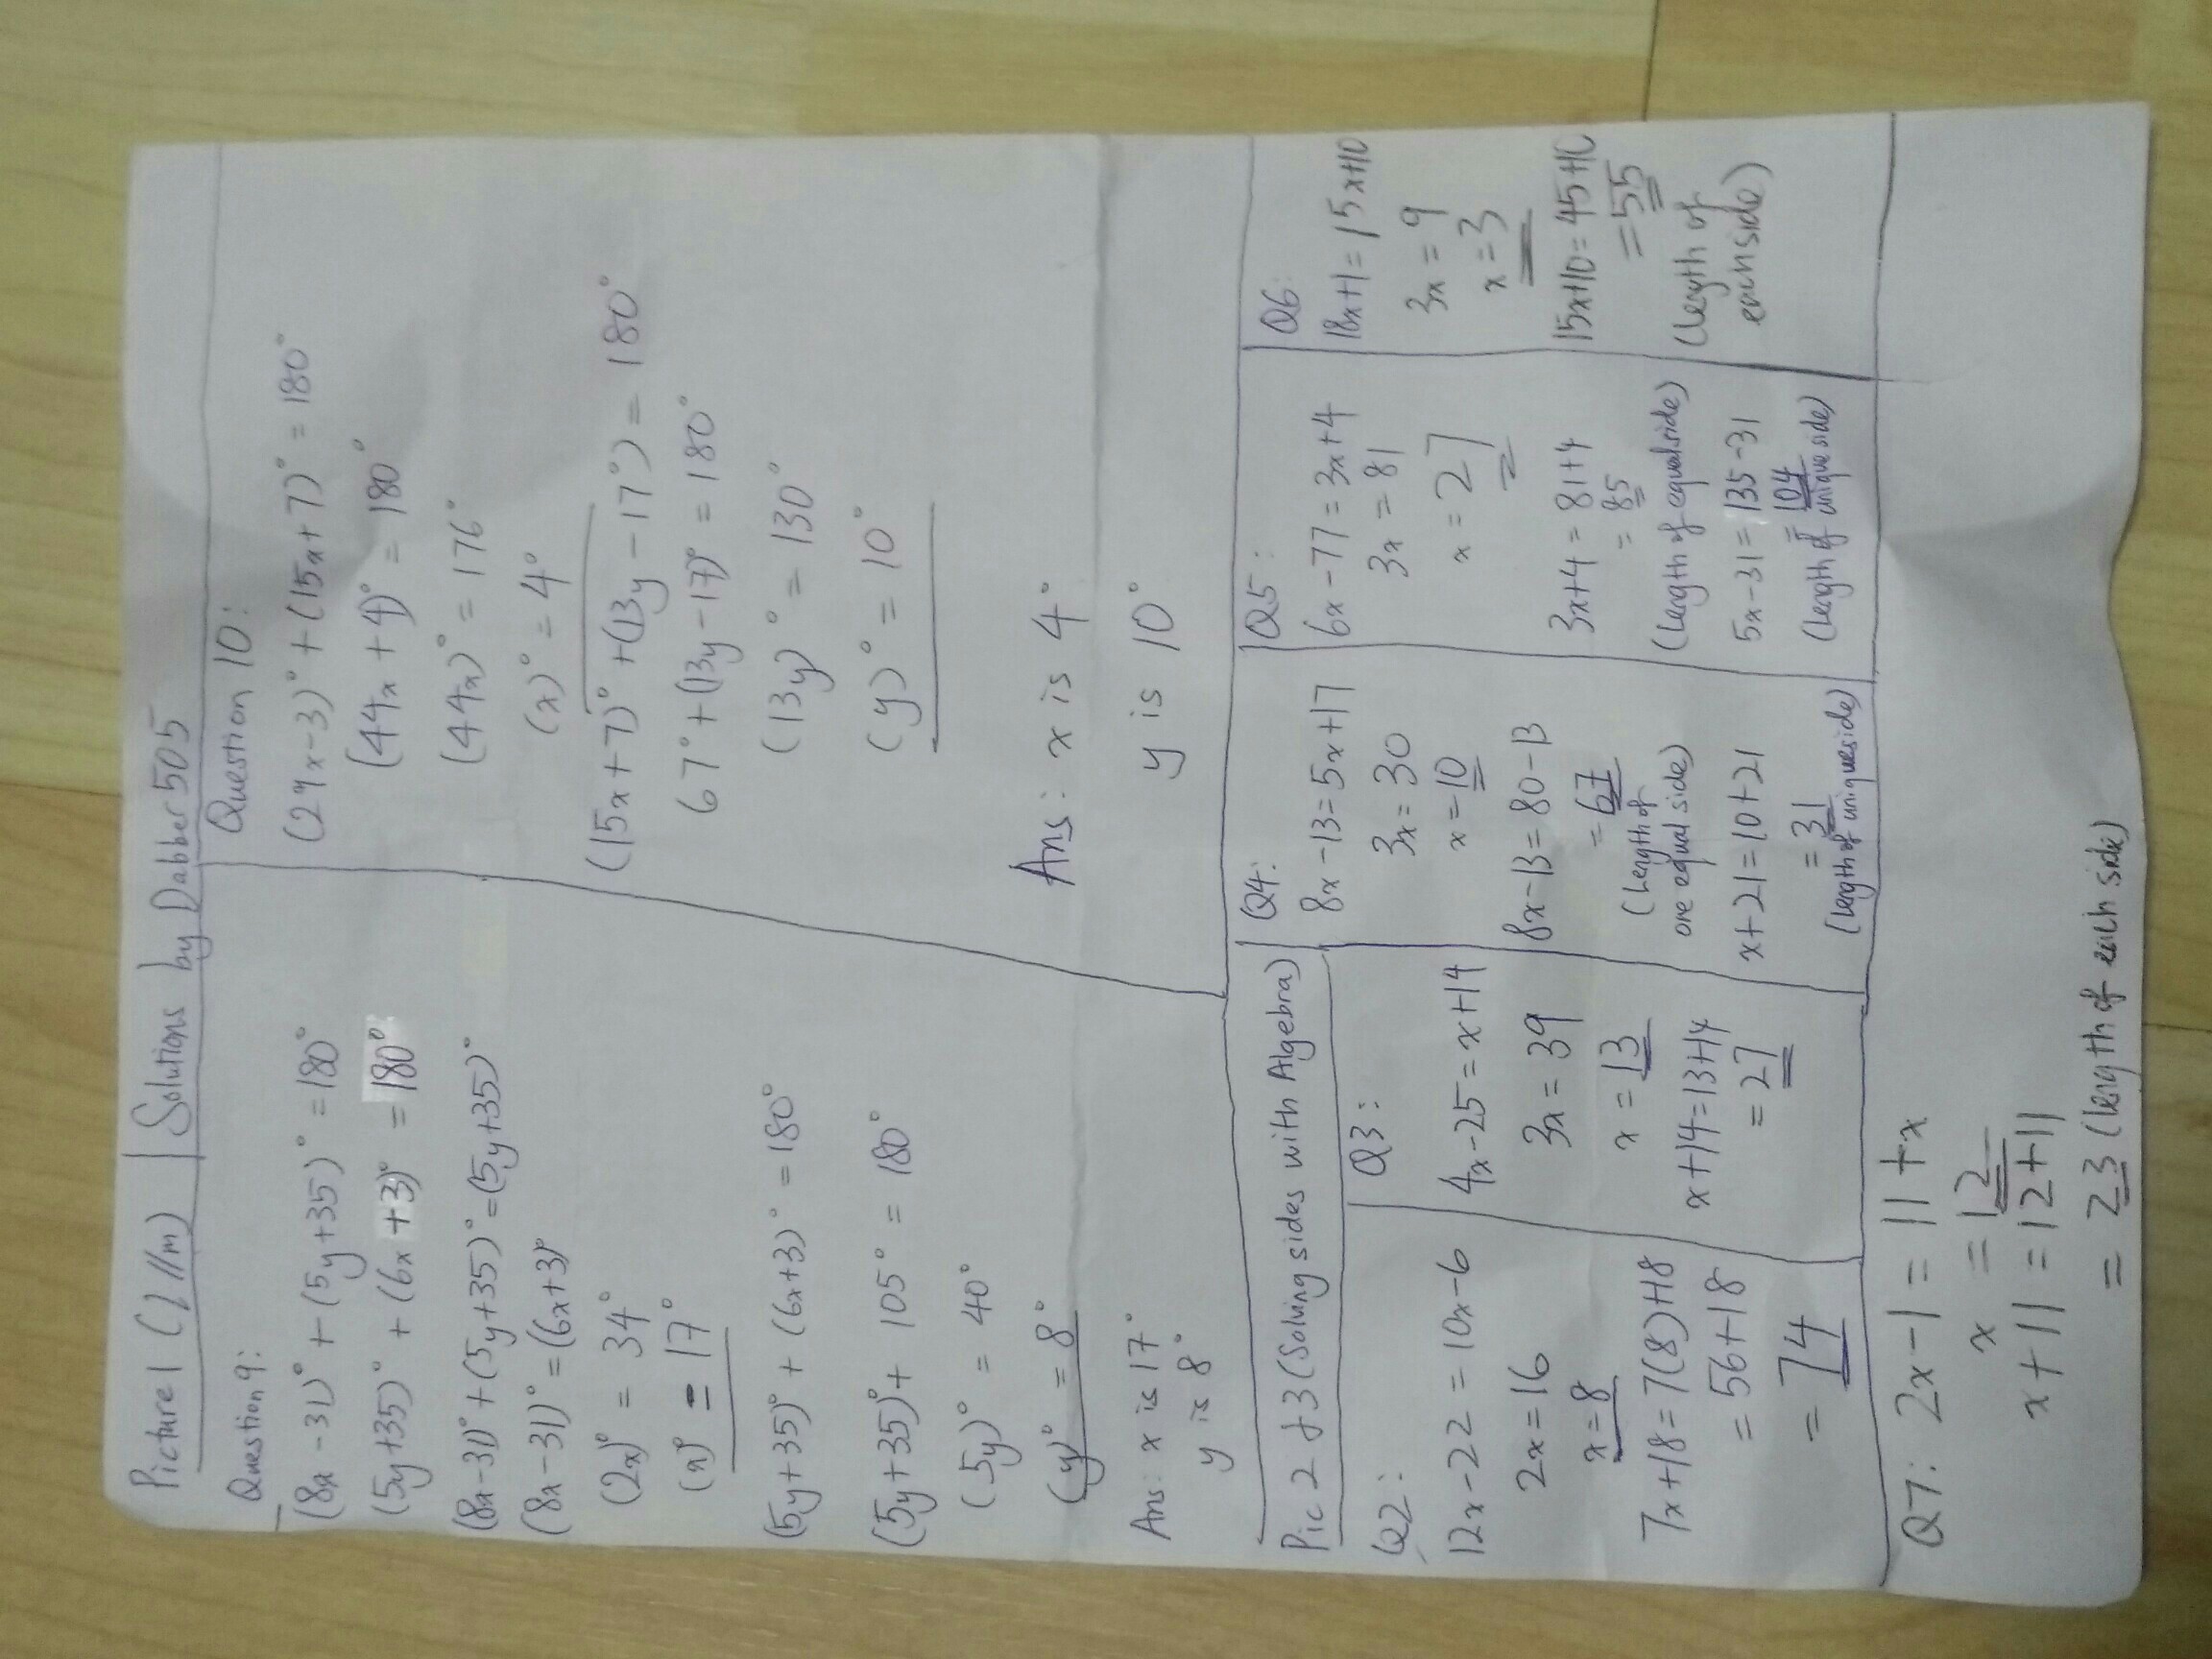 Picture 1 (2 //m) | Solutions by Dabber505
Question 9:
(8x-31)° + (5y+35)° = 180°
(5y+35)° + (6x+3)° = 180°
(8x-31)° + (5y+35)° = (5y+35)°
(8x-31)° = (6x+3)°
(2x)° = 34°
(x)° = 17°
(5y+35)° + (6x+3)° = 180°
(5y+35)° + 105° = 180°
(5y)° = 40°
(y)° = 8°
Ans: x is 17°
y is 8°
Question 10:
(29x-3)° + (15x+7)° = 180°
(44x+4)° = 180°
(44x)° = 176°
(x)° = 4°
(15x+7)° + (13y-17°) = 180°
67° + (13y-17)° = 180°
(13y)° = 130°
(y)° = 10°
Ans: x is 4°
y is 10°
Pic 2 & 3 (Solving sides with Algebra)
Q2:
12x-22 = 10x-6
2x = 16
x = 8
7x+18 = 7(8)+18
= 56+18
= 74
Q3:
4x-25 = x+14
3x = 39
x = 13
x+14 = 13+14
= 27
Q4:
8x-13 = 5x+17
3x = 30
x = 10
8x-13 = 80-13
= 67
(Length of
one equal side)
x+21 = 10+21
= 31
(Length of unique side)
Q5:
6x-77 = 3x+4
3x = 81
x = 27
3x+4 = 81+4
= 85
(Length of equal side)
5x-31 = 135-31
= 104
(Length of unique side)
Q6:
18x+1 = 15x+10
3x = 9
x = 3
15x+10 = 45+10
= 55
(Length of
each side)
Q7: 2x-1 = 11+x
x = 12
x+11 = 12+11
= 23 (length of each side)